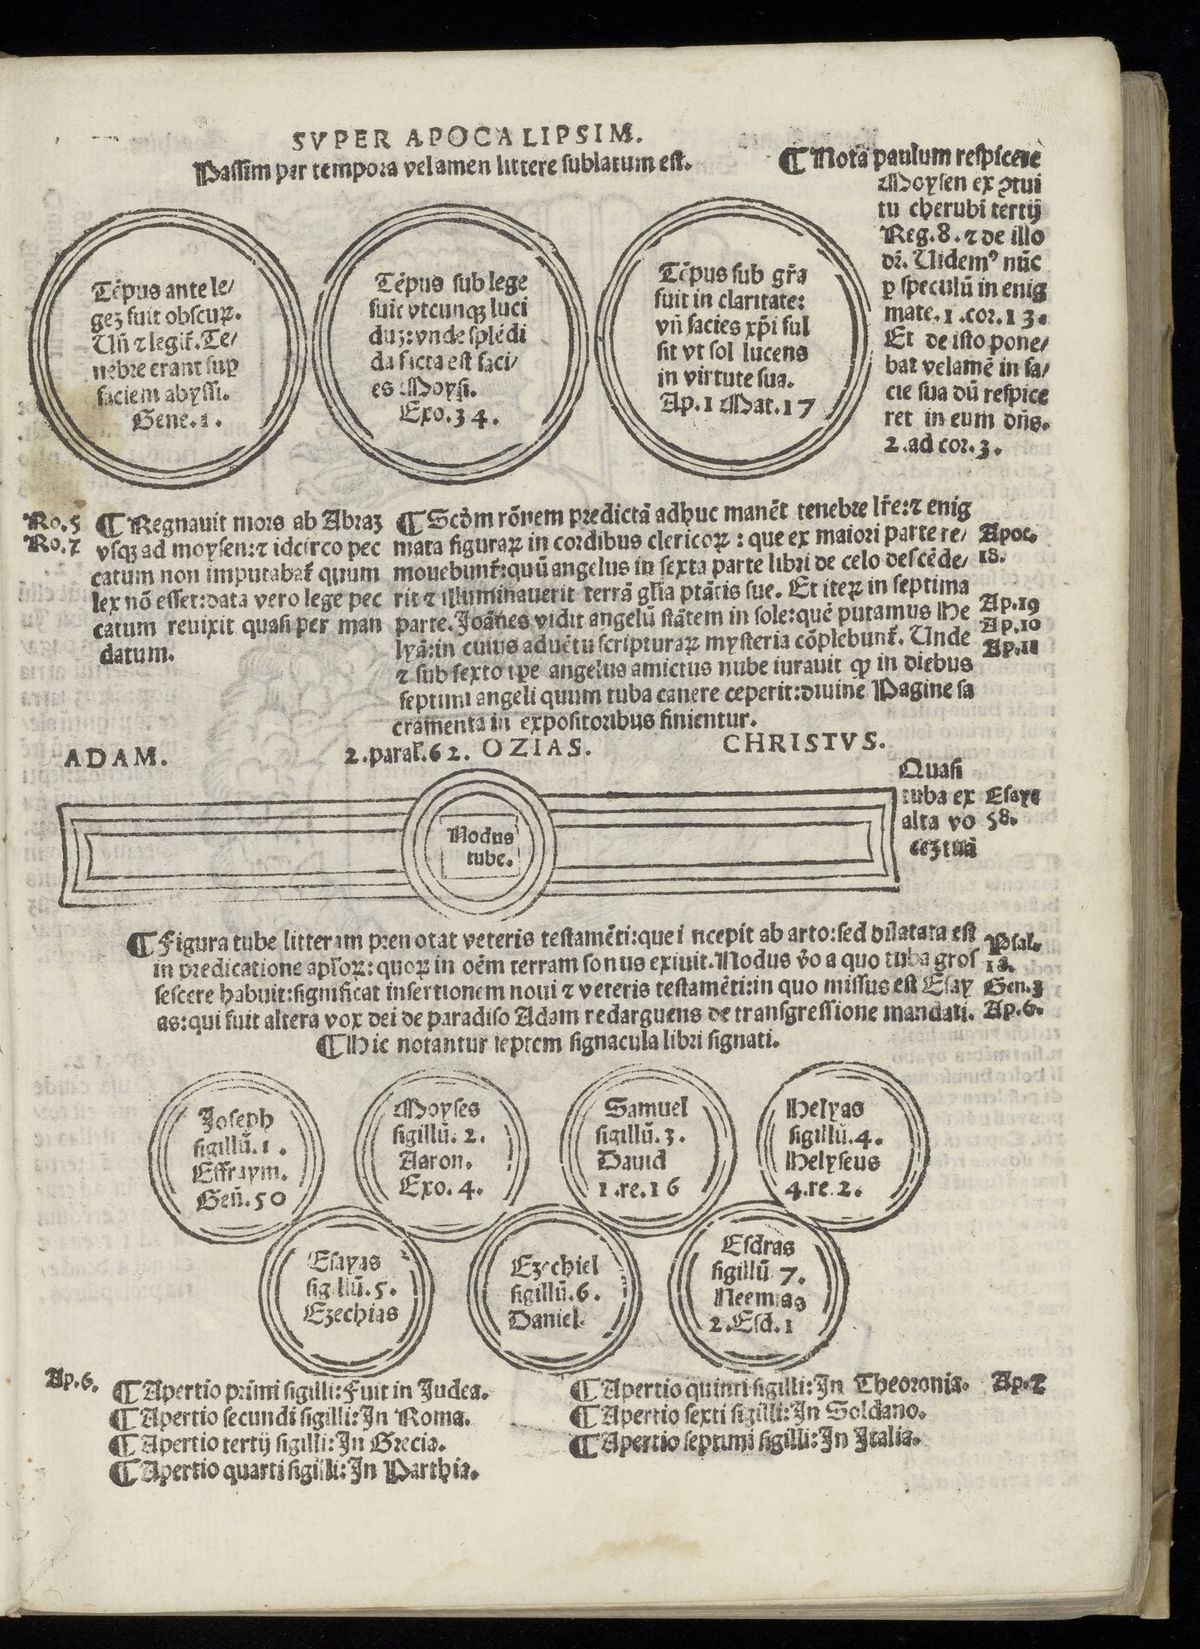 SVPER APOCALIPSIM.
Passim per tempora velamen littere sublatum est.
¶ Nota paulum respicere
Moysen ex ꝯtui
tu cherubi tertij
Reg. 8. ⁊ de illo
dr̄. Uidemꝰ nūc
ꝑ speculū in enig
mate. 1. cor. 13.
Et de isto pone/
bat velamē in fa/
cie sua dū respice
ret in eum dn̄s.
2. ad cor. 3.
Tēpus ante le/
geȝ fuit obscuꝝ.
Un̄ ⁊ legit̄. Te/
nebre erant suꝑ
faciem abyssi.
Gene. 1.
Tēpus sub lege
fuit vtcunqȝ luci
duȝ: vnde splēdi
da facta est faci/
es Moysi.
Exo. 34.
Tēpus sub gr̄a
fuit in claritate:
vn̄ facies xp̄i ful
sit vt sol lucens
in virtute sua.
Ap. 1 Mat. 17
Ro. 5
Ro. 7
¶ Regnauit mors ab Abraȝ
vsqȝ ad moysen: ⁊ idcirco pec
catum non imputabat̄ quum
lex nō esset: data vero lege pec
catum reuixit quasi per man
datum.
¶ Scd̄m rōnem predictā adhuc manēt tenebre lr̄e: ⁊ enig
mata figuraꝝ in cordibus clericoꝝ: que ex maiori parte re/
mouebunt̄: quū angelus in sexta parte libri de celo descēde/
rit ⁊ illuminauerit terrā gl̄ia ptātis sue. Et iteꝝ in septima
parte. Joānes vidit angelū stātem in sole: quē putamus He
lyā: in cuius aduētu scripturaꝝ mysteria cōplebunt̄. Unde
⁊ sub sexto tp̄e angelus amictus nube iurauit ꝙ in diebus
septimi angeli quum tuba canere ceperit: diuine Pagine sa
cramenta in expositoribus finientur.
Apoc.
18.
Ap. 19
Ap. 10
Ap. 11
ADAM.
2. paral̄. 62. OZIAS.
CHRISTVS.
Nodus
tube.
Quasi
tuba ex
alta vo
ceȝ tuā
Esaye
58.
¶ Figura tube litteram prenotat veteris testamēti: que incepit ab arto: sed dilatata est
in predicatione apl̄oꝝ: quoꝝ in oēm terram sonus exiuit. Nodus v̄o a quo tuba gros
sescere habuit: significat insertionem noui ⁊ veteris testamēti: in quo missus est Esay
as: qui fuit altera vox dei de paradiso Adam redarguens de transgressione mandati.
Psal.
18.
Gen. 3
Ap. 6.
¶ Hic notantur septem signacula libri signati.
Joseph
sigillū. 1.
Effraym.
Gen̄. 50
Moyses
sigillū. 2.
Aaron.
Exo. 4.
Samuel
sigillū. 3.
Dauid
1. re. 16
Helyas
sigillū. 4.
Helyseus
4. re 2.
Esayas
sigillū. 5.
Ezechias
Ezechiel
sigillū. 6.
Daniel.
Esdras
sigillū 7.
Neemias
2. Esd. 1
Ap. 6.
¶ Apertio primi sigilli: Fuit in Judea.
¶ Apertio secundi sigilli: In Roma.
¶ Apertio tertij sigilli: In Grecia.
¶ Apertio quarti sigilli: In Parthia.
¶ Apertio quinti sigilli: In Theoronia.
¶ Apertio sexti sigilli: In Soldano.
¶ Apertio septimi sigilli: In Italia.